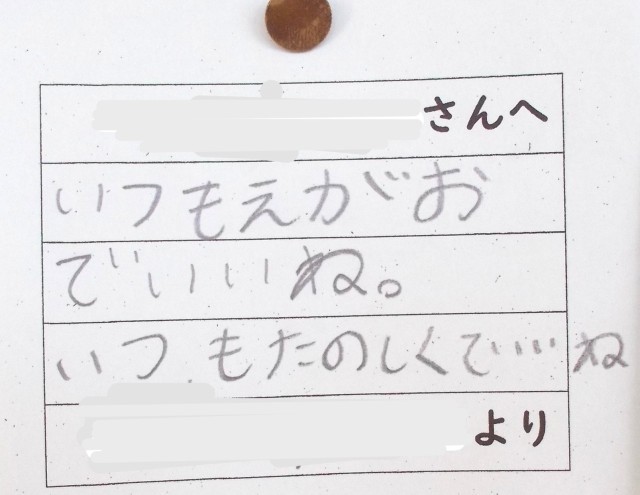 さんへ
いつもえがお
でいいね。
いつもたのしくていいね
より